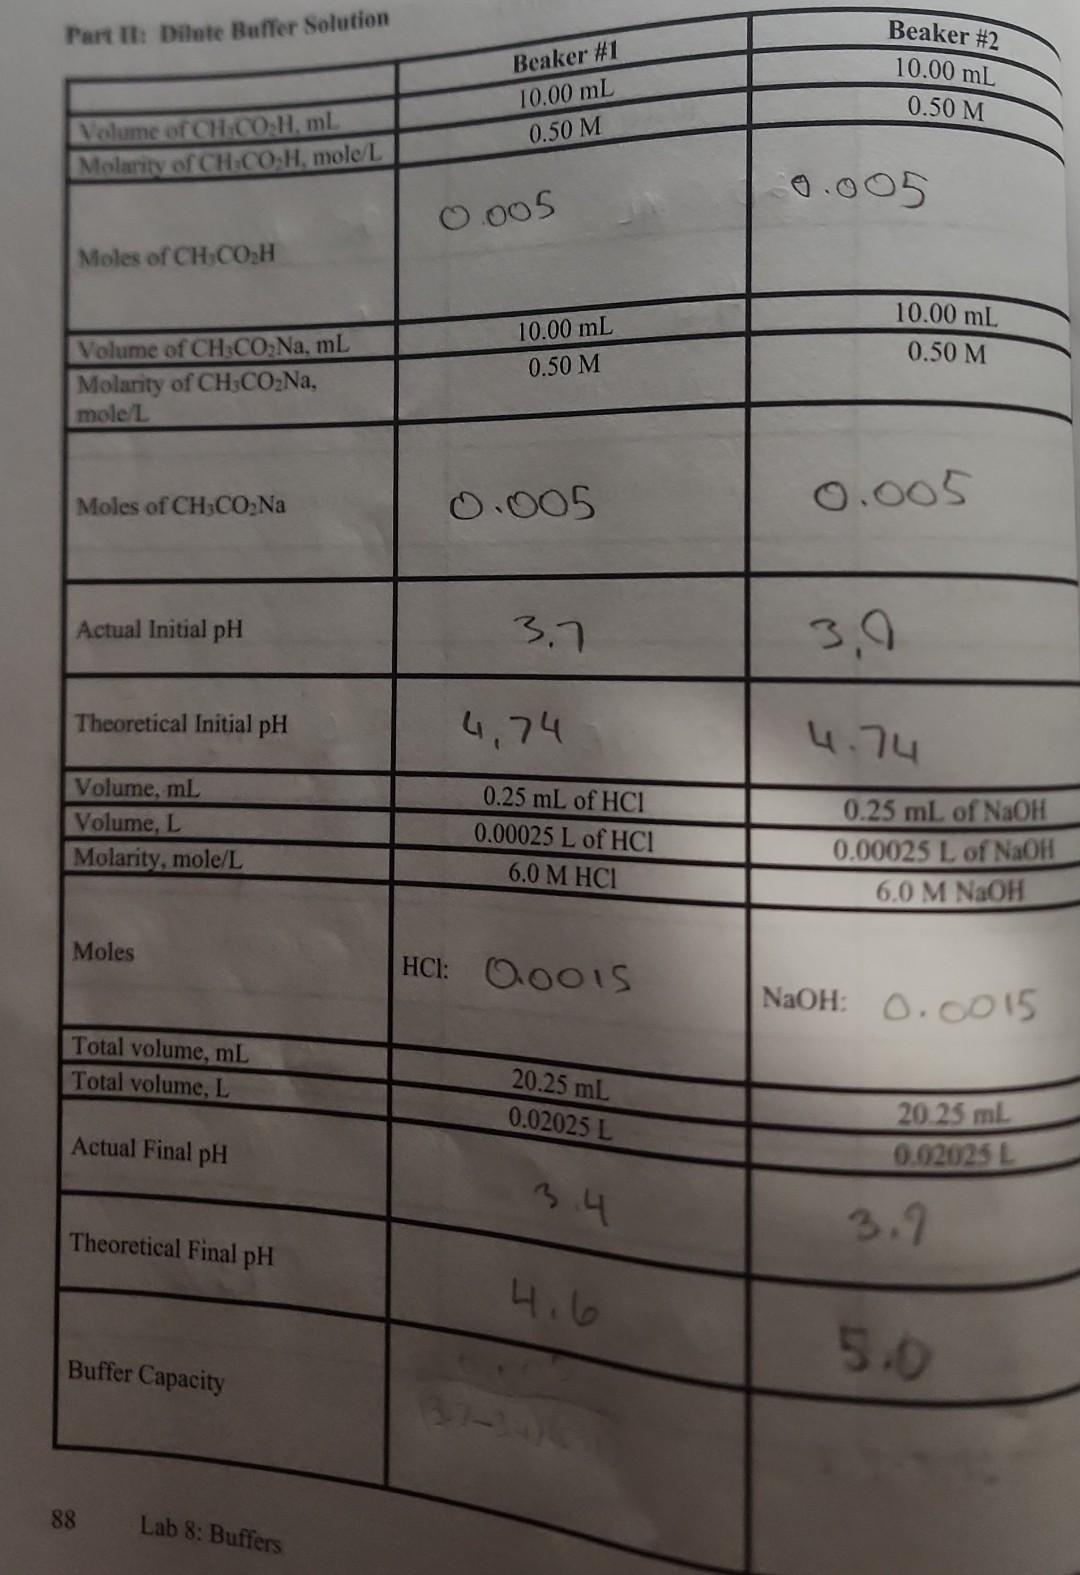 Part II: Dilute Buffer Solution
Beaker #1 Beaker #2
Volume of CH₃CO₂H, mL 10.00 mL 10.00 mL
Molarity of CH₃CO₂H, mole/L 0.50 M 0.50 M
Moles of CH₃CO₂H 0.005 0.005
Volume of CH₃CO₂Na, mL 10.00 mL 10.00 mL
Molarity of CH₃CO₂Na, 0.50 M 0.50 M
mole/L
Moles of CH₃CO₂Na 0.005 0.005
Actual Initial pH 3.7 3,9
Theoretical Initial pH 4,74 4.74
Volume, mL 0.25 mL of HCl 0.25 mL of NaOH
Volume, L 0.00025 L of HCl 0.00025 L of NaOH
Molarity, mole/L 6.0 M HCl 6.0 M NaOH
Moles HCl: 0.0015 NaOH: 0.0015
Total volume, mL 20.25 mL 20.25 mL
Total volume, L 0.02025 L 0.02025 L
Actual Final pH 3.4 3.9
Theoretical Final pH 4.6 5.0
Buffer Capacity
88 Lab 8: Buffers